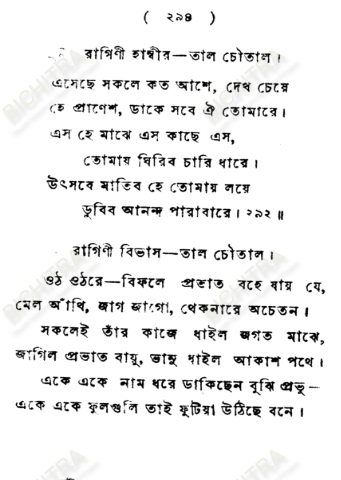 ( ২৯৪ )
রাগিণী হাম্বীর—তাল চৌতাল।
এসেছে সকলে কত আশে, দেখ চেয়ে
হে প্রাণেশ, ডাকে সবে ঐ তোমারে।
এস হে মাঝে এস কাছে এস,
তোমায় ঘিরিব চারি ধারে।
উৎসবে মাতিব হে তোমায় লয়ে
ডুবিব আনন্দ পারাবারে। ২৯২॥
রাগিণী বিভাস—তাল চৌতাল।
ওঠ ওঠরে—বিফলে প্রভাত বহে যায় যে,
মেল আঁথি, জাগ জাগো, থেকনারে অচেতন।
সকলেই তাঁর কাজে ধাইল জগত মাঝে,
জাগিল প্রভাত বায়ু, ভানু ধাইল আকাশ পথে।
একে একে নাম ধরে ডাকিছেন বুঝি প্রভু—
একে একে ফুলগুলি তাই ফুটিয়া উঠিছে বনে।
BICHITRA